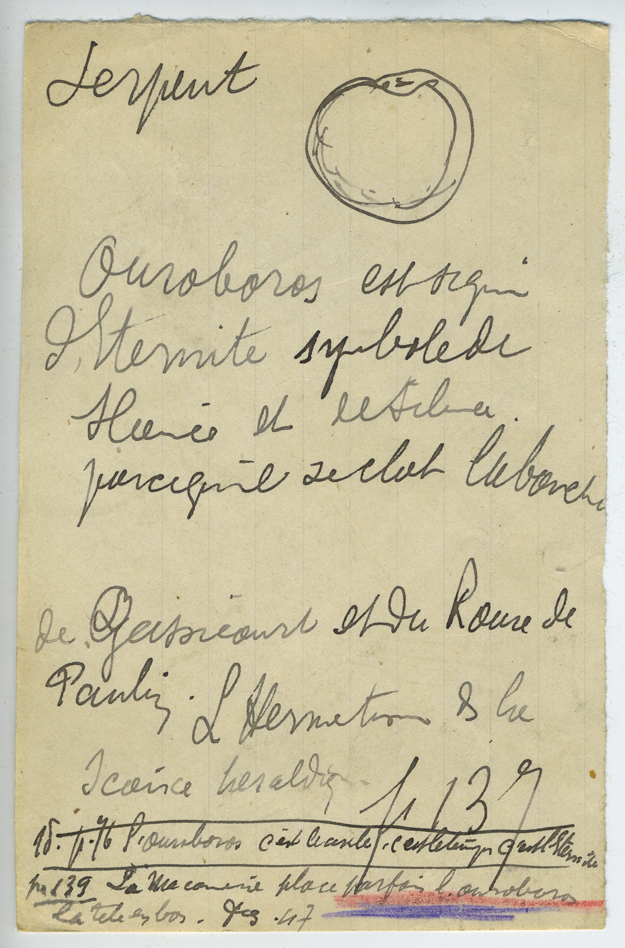 Serpent
Ouroboros est signe
d'Eternite symbole de
Science et
parcequ'il se clot la bouche
de Gassicourt et du Roure de
Paulin. L'Hermetisme ds la
science heraldique p 137
id. p. 76 l'ouroboros c'est le cercle, c'est le temps c'est l'Eternité
p. 139 La Maconnerie place parfois l'ouroboros
la tete en bas. fig. 47